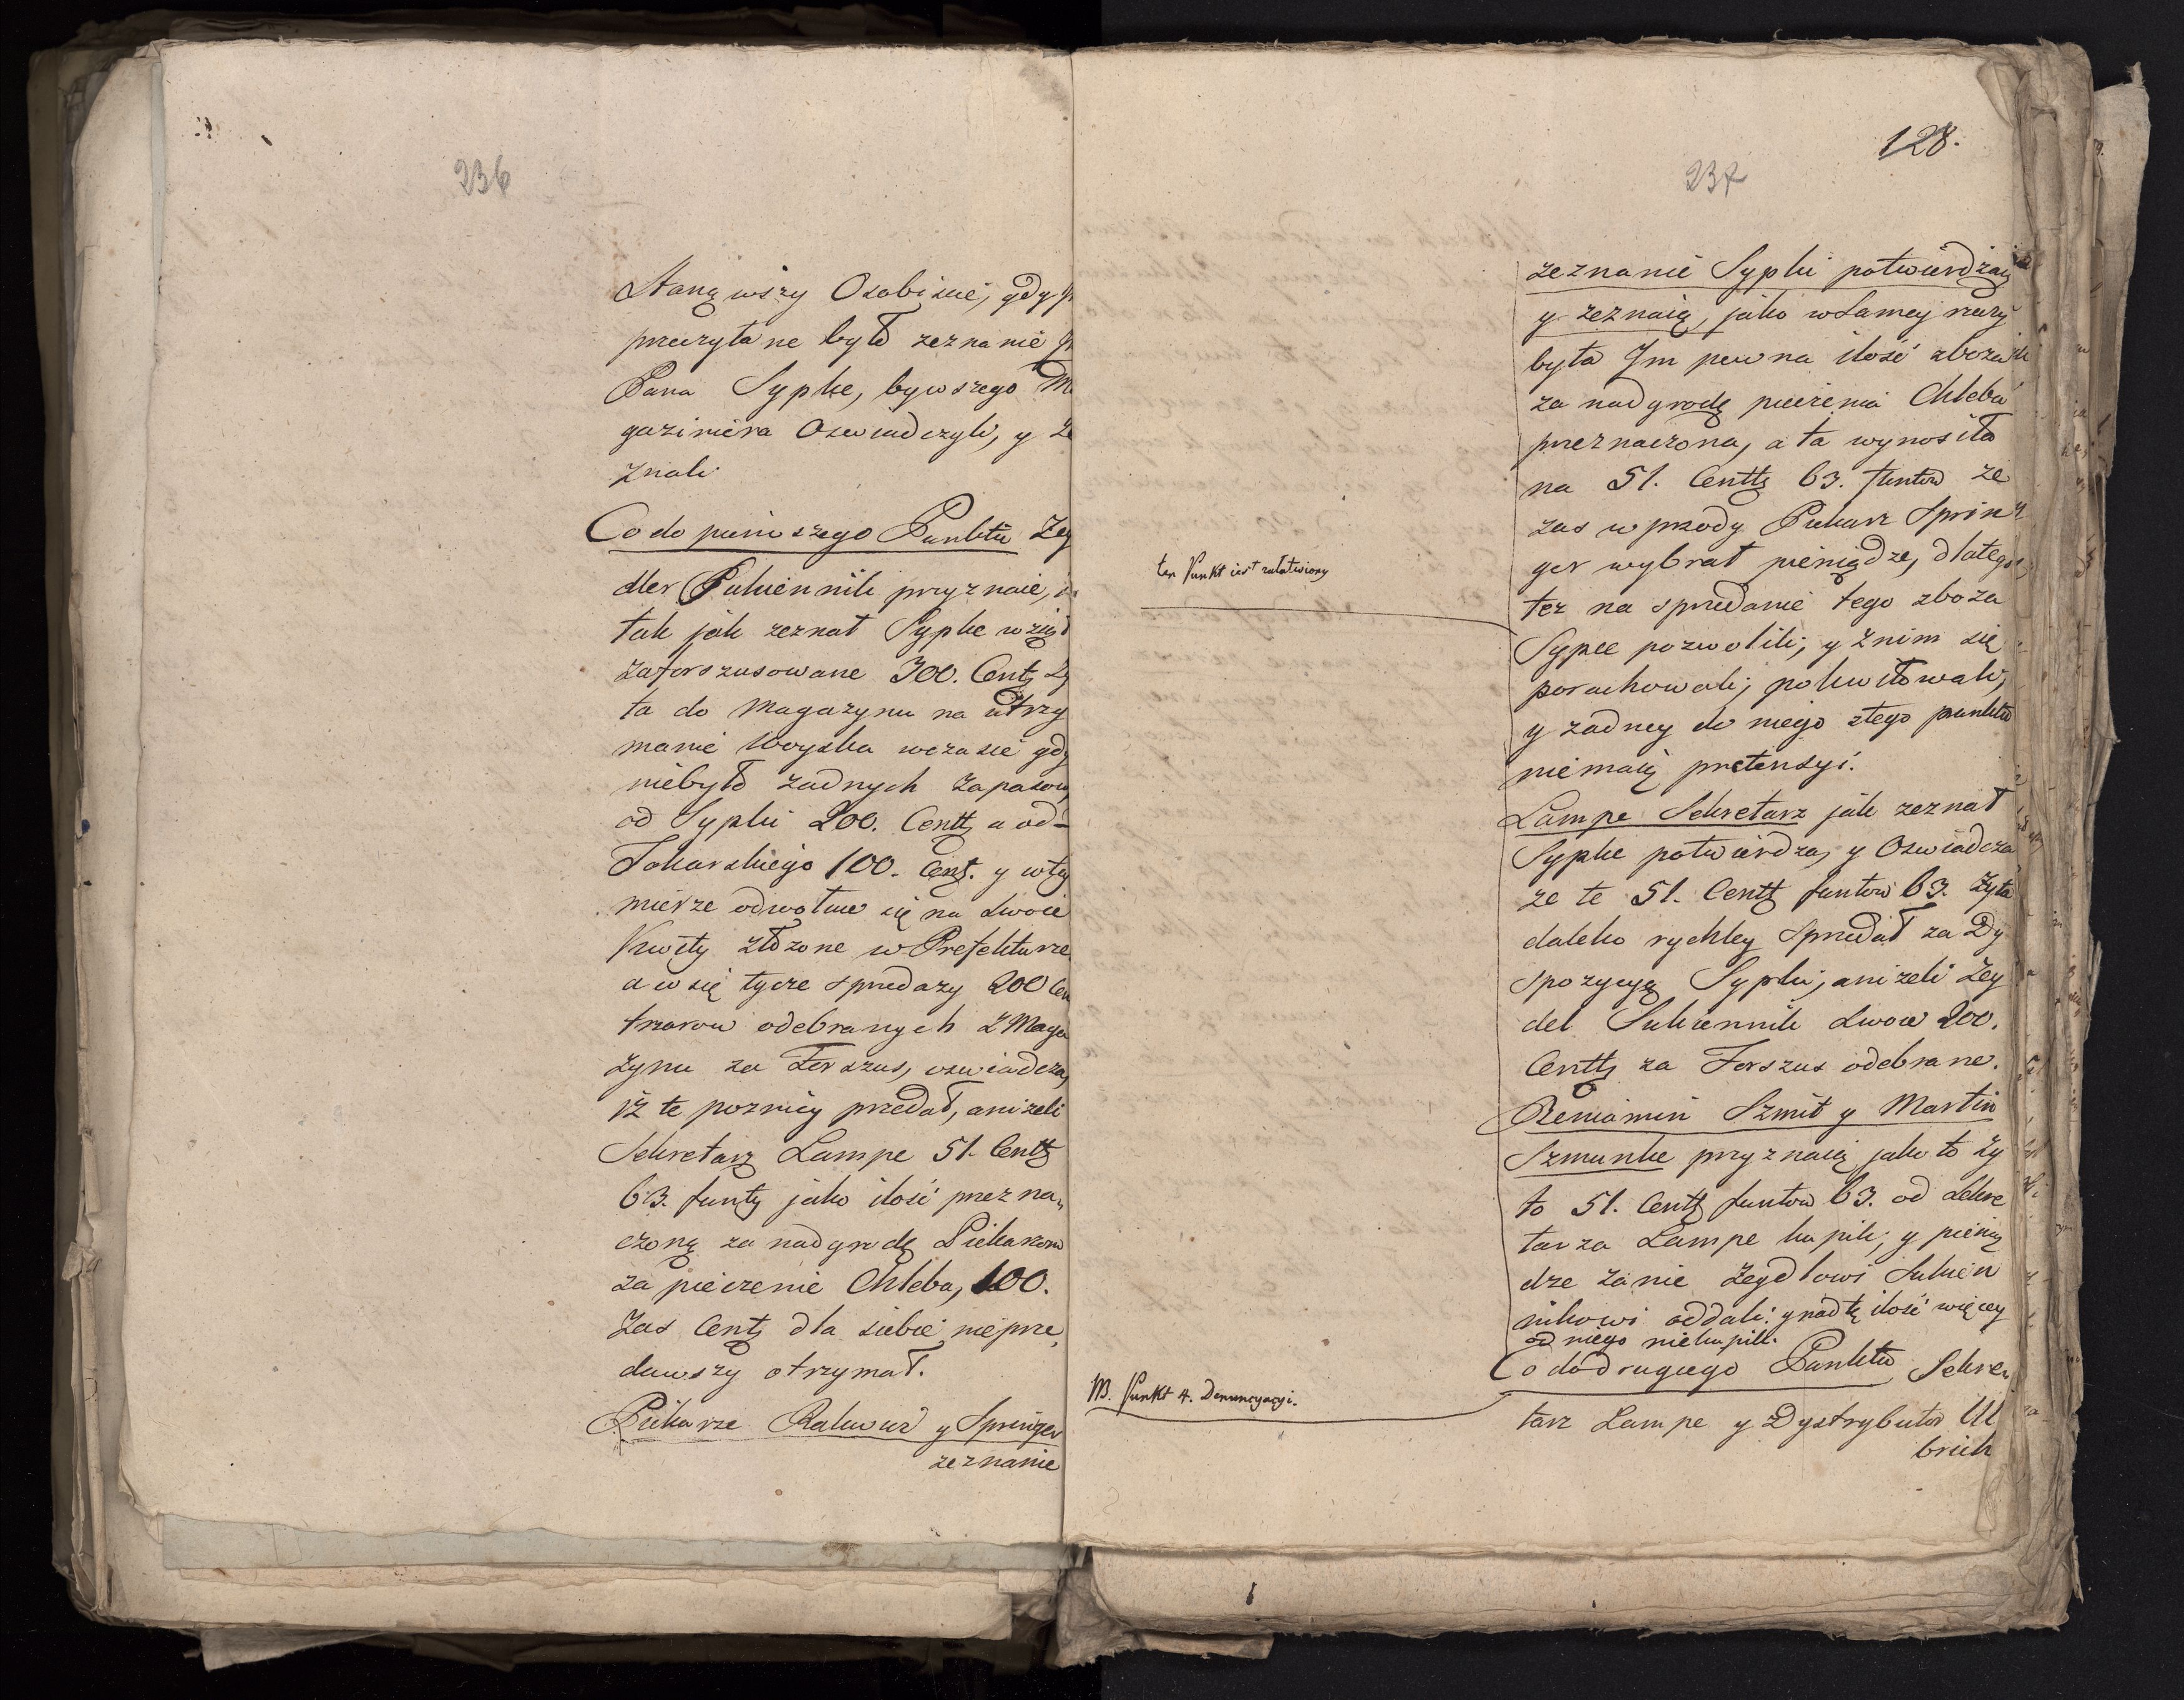 236
Stanąwszy Osobiscie, gdy
przeczytane było zeznanie
Pana Sypke, bywszego Ma
gaziniera Oswiadczyli, y Ze
znali
Co do pierwszego Punktu Zey
dler Sukiennik przyznaie,
tak jak zeznał Sypke wziął
zaforszusowane 300. Cent. Zy
ta do Magazynu na utrzy
manie Woyska wczasie gdy
niebyło żadnych Zapasow,
od Sypki 200. Centt a od-
Tokarskiego 100. Cent. y wtey
mierze odwołuie się na swoie
Kwity złożone w Prefekturze
a w się tycze sprzedazy 200 Cen
tnarow odebranych z Maga
zynu za Forszus, oswiadcza,
iż te pozniey przedał, anizeli
Sekretarz Lampe 51. Centt
63. funty jako ilość przezna
czoną za nadgrodę Piekarzom
za pieczenie Chleba, 100.
Zas Cent dla siebie nieprze
dawszy otrzymał.
Piekarze Rakwic y Springer
zeznanie
128.
237
zeznanie Sypki potwierdzaią
y zeznaią, jako w samey rzeczy
była Im pewna ilość zboza
za nadgrodę pieczenia Chleba
przeznaczona, a ta wynosiła
na 51. Centt 63. funtow ze
zas wprzody Piekarz Sprin
ger wybrał pieniądze, dlatego
tez na sprzedanie tego zboza
Sypce pozwolili, y z nim się
porachowali, pokwitowali,
y zadney do niego ztego punktu
niemaią pretensyi.
Lampe Sekretarz jak zeznał
Sypke potwierdza, y Oswiadcza
ze te 51. Centt funtow 63. Zyta
daleko rychley sprzedał za Dy
spozycyą Sypki, anizeli Zey
del Sukiennik swoie 200.
Centt za Forszus odebrane.
Beniamin Szmit y Martin
Szmunke przyznaią jako to Zy
to 51. Centt funtow 63. od Sekre
tarza Lampe kupili, y pienią
dze zanie Zeydlowi Sukien
nikowi oddali. y nad tę ilość więcey
od niego niekupili.
Co do drugiego Punktu Sekre
tarz Lampe y Dystrybutor Ul
brich
ten Punkt iest załatwiony
NB. Punkt 4. Denuncyacyi.